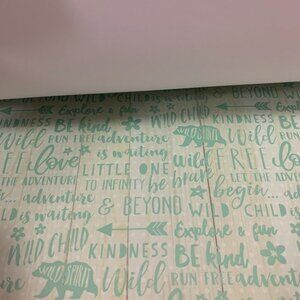 BEYOND WILD CHILD is & BEYOND WILD
Explore & fun WILD CHILD
KINDNESS BE kind KINDNESS
Wild RUN FREE adventure Wild RUN
FREE love is waiting FREE love
THE ADVENTURE LITTLE ONE be brave LET THE ADVENTURE
adventure TO INFINITY begin... adventure
is waiting & BEYOND WILD CHILD is
WILD CHILD Explore & fun
KINDNESS BE kind
WILD SPIRIT Wild RUN FREE adventure